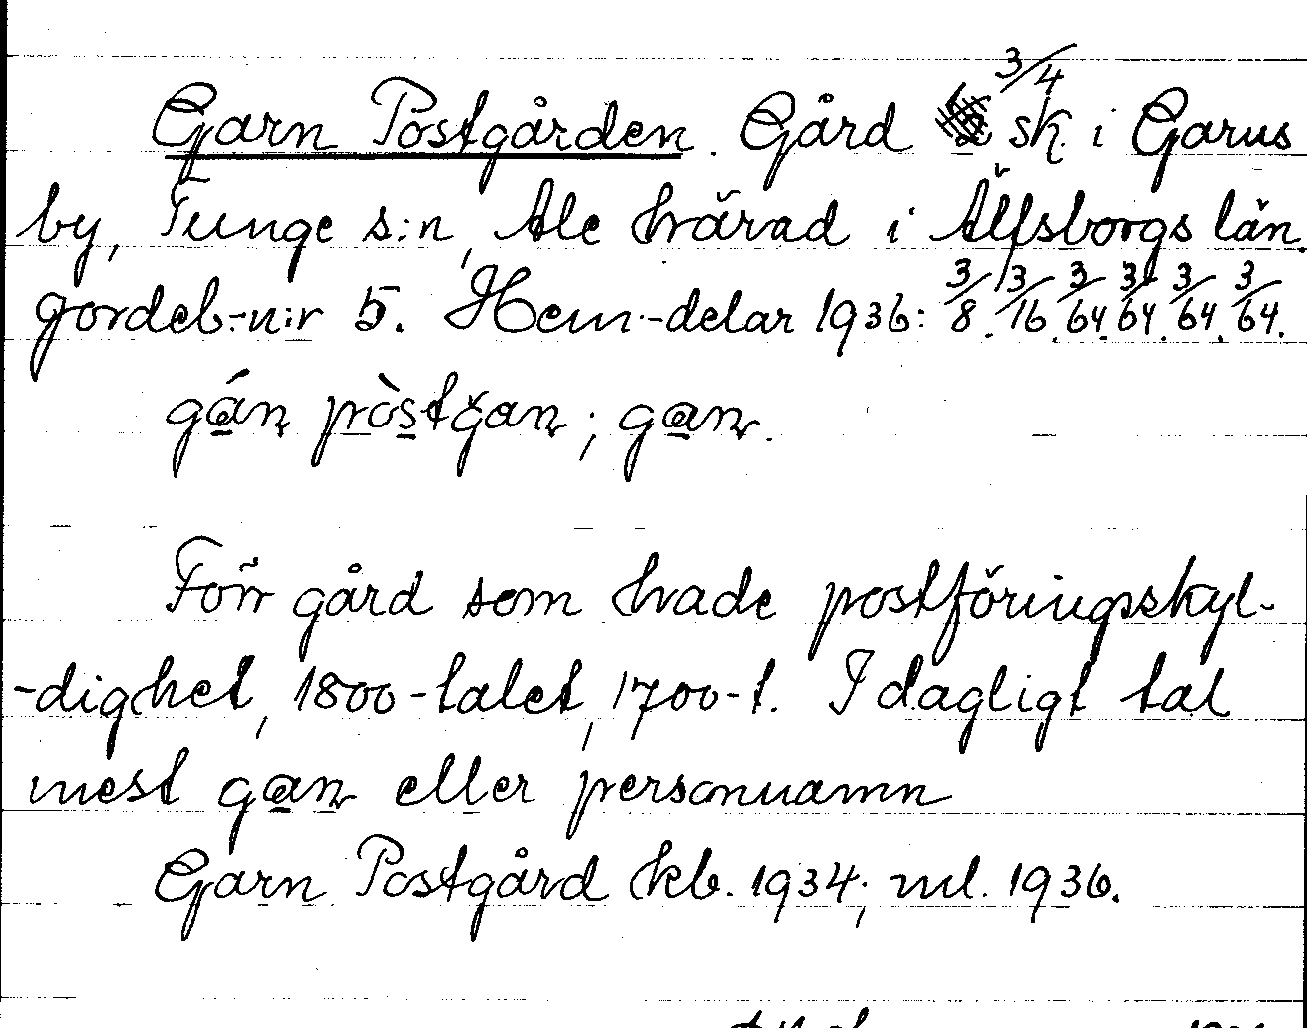 Garn Postgården. Gård 3/4 sk i Garns
by, Tunge s:n, Ale härad i Älfsborgs län.
Jordeb.-n:r 5. Hem.-delar 1936: 3/8. 3/16. 3/64. 3/64. 3/64. 3/64.
gán pòstgan; gan.
Förr gård som hade postföringsskyl-
-dighet, 1800-talet, 1700-t. I dagligt tal
mest gan eller personnamn
Garn Postgård kb. 1934; ml. 1936.